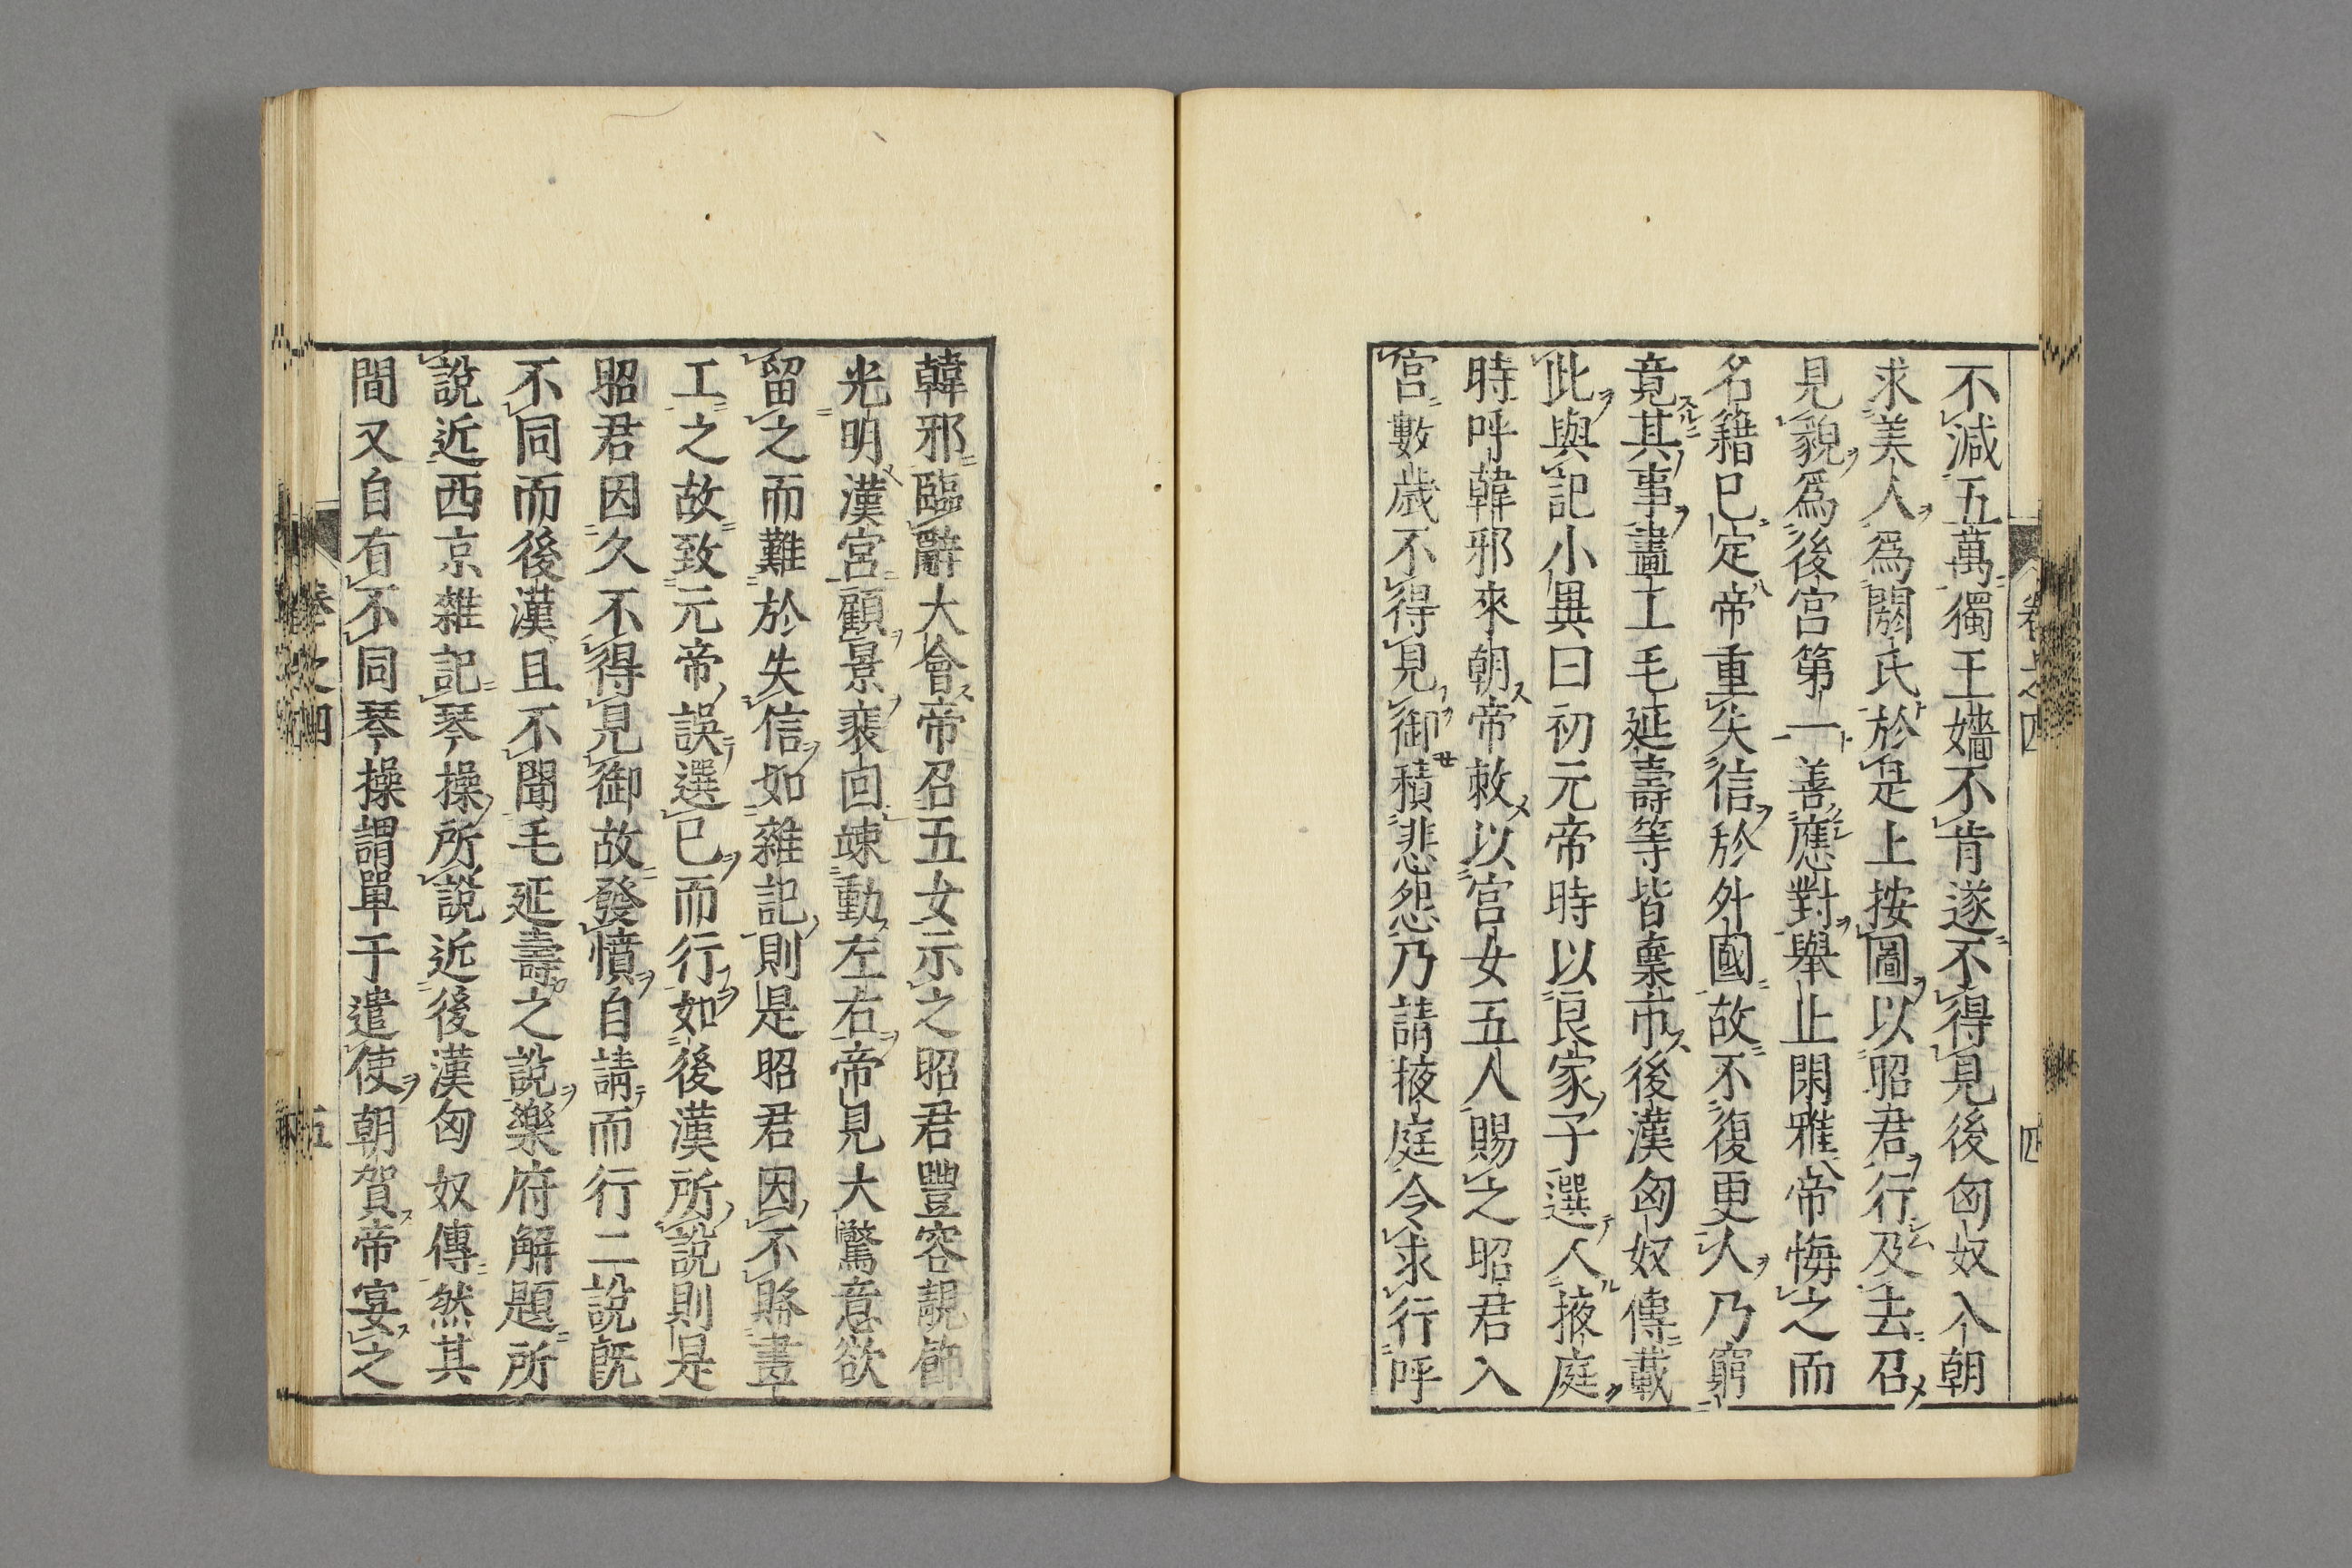 不減五萬獨王嬙不肯遂不得見後匈奴入朝
求美人爲閼氏於是上按圖以昭君行及去召
見貌爲後宮第一善應對舉止閑雅帝悔之而
名籍已定帝重失信於外國故不復更人乃窮
竟其事畫工毛延壽等皆棄市後漢匈奴傳載
此與記小異曰初元帝時以良家子選入掖庭
時呼韓邪來朝帝敕以宮女五人賜之昭君入
宮數歲不得見御積悲怨乃請掖庭令求行呼
卷之四
四
韓邪臨辭大會帝召五女示之昭君豐容靚飾
光明漢宮顧景裴回竦動左右帝見大驚意欲
留之而難於失信如雜記則是昭君因不賂畫
工之故致元帝誤選已而行如後漢所說則是
昭君因久不得見御故發憤自請而行二說旣
不同而後漢且不聞毛延壽之說樂府解題所
說近西京雜記琴操所說近後漢匈奴傳然其
間又自有不同琴操謂單于遣使朝賀帝宴之
卷之四
五